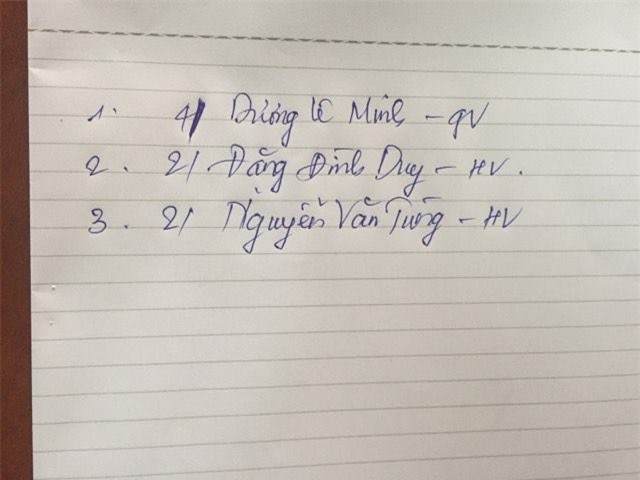 1. 4/ Dương Lê Minh - QV
2. 2/ Đặng Đình Duy - HV.
3. 2/ Nguyễn Văn Tưởng - HV